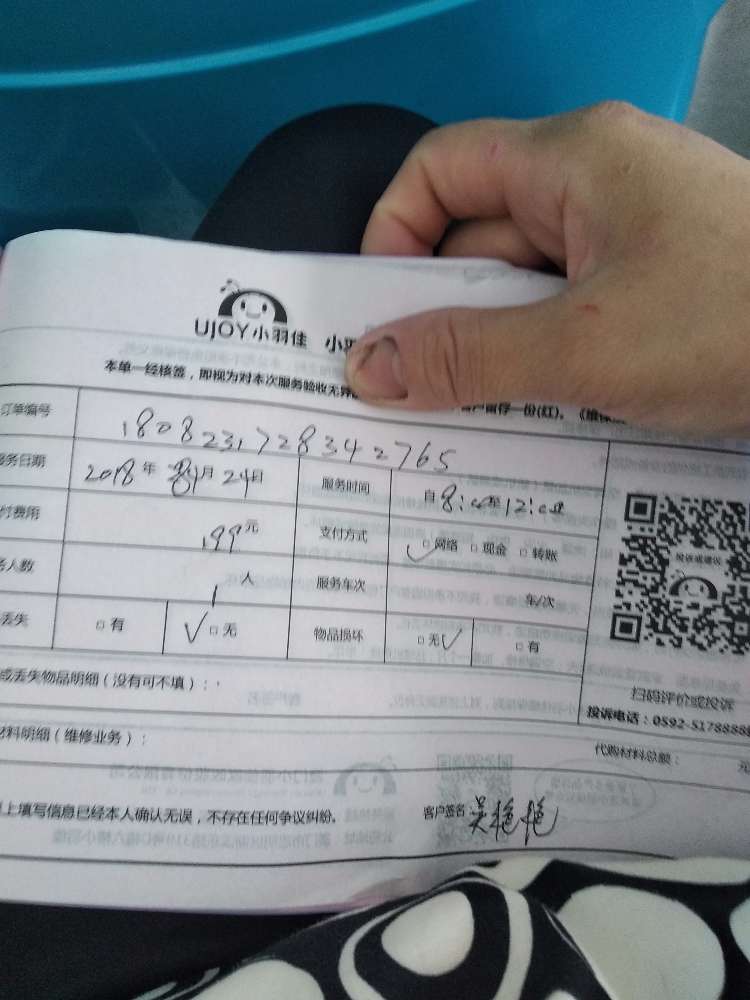 UJOY小羽佳 小羽
本单一经核签，即视为对本次服务验收无异 客户留存一份(红)。《维保
订单编号 1808231728342765
服务日期 2018年 8月24日 服务时间 自8:00至12:00止
付费用 199元 支付方式 □网络 □现金 □转账
务人数 1人 服务车次 车/次
丢失 □有 □无 物品损坏 □无 □有
投诉或建议
扫码评价或投诉
投诉电话：0592-5178888
或丢失物品明细（没有可不填）：
材料明细（维修业务）： 代购材料总额： 元
上填写信息已经本人确认无误，不存在任何争议纠纷。 客户签名 吴艳艳